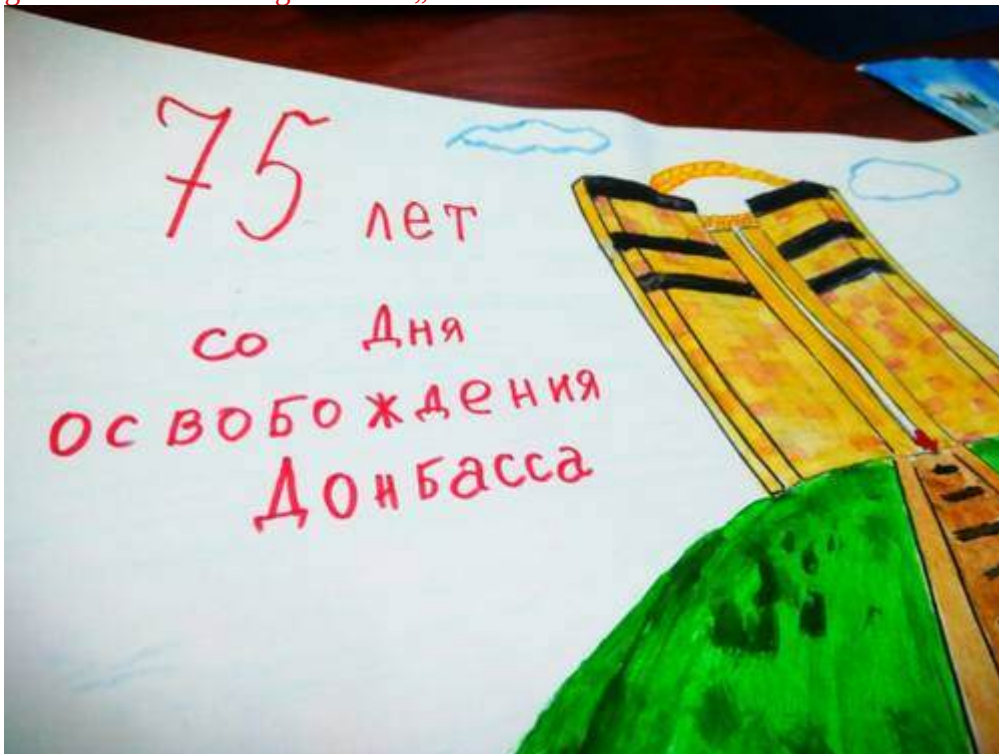 75 лет
со Дня
освобождения
Донбасса